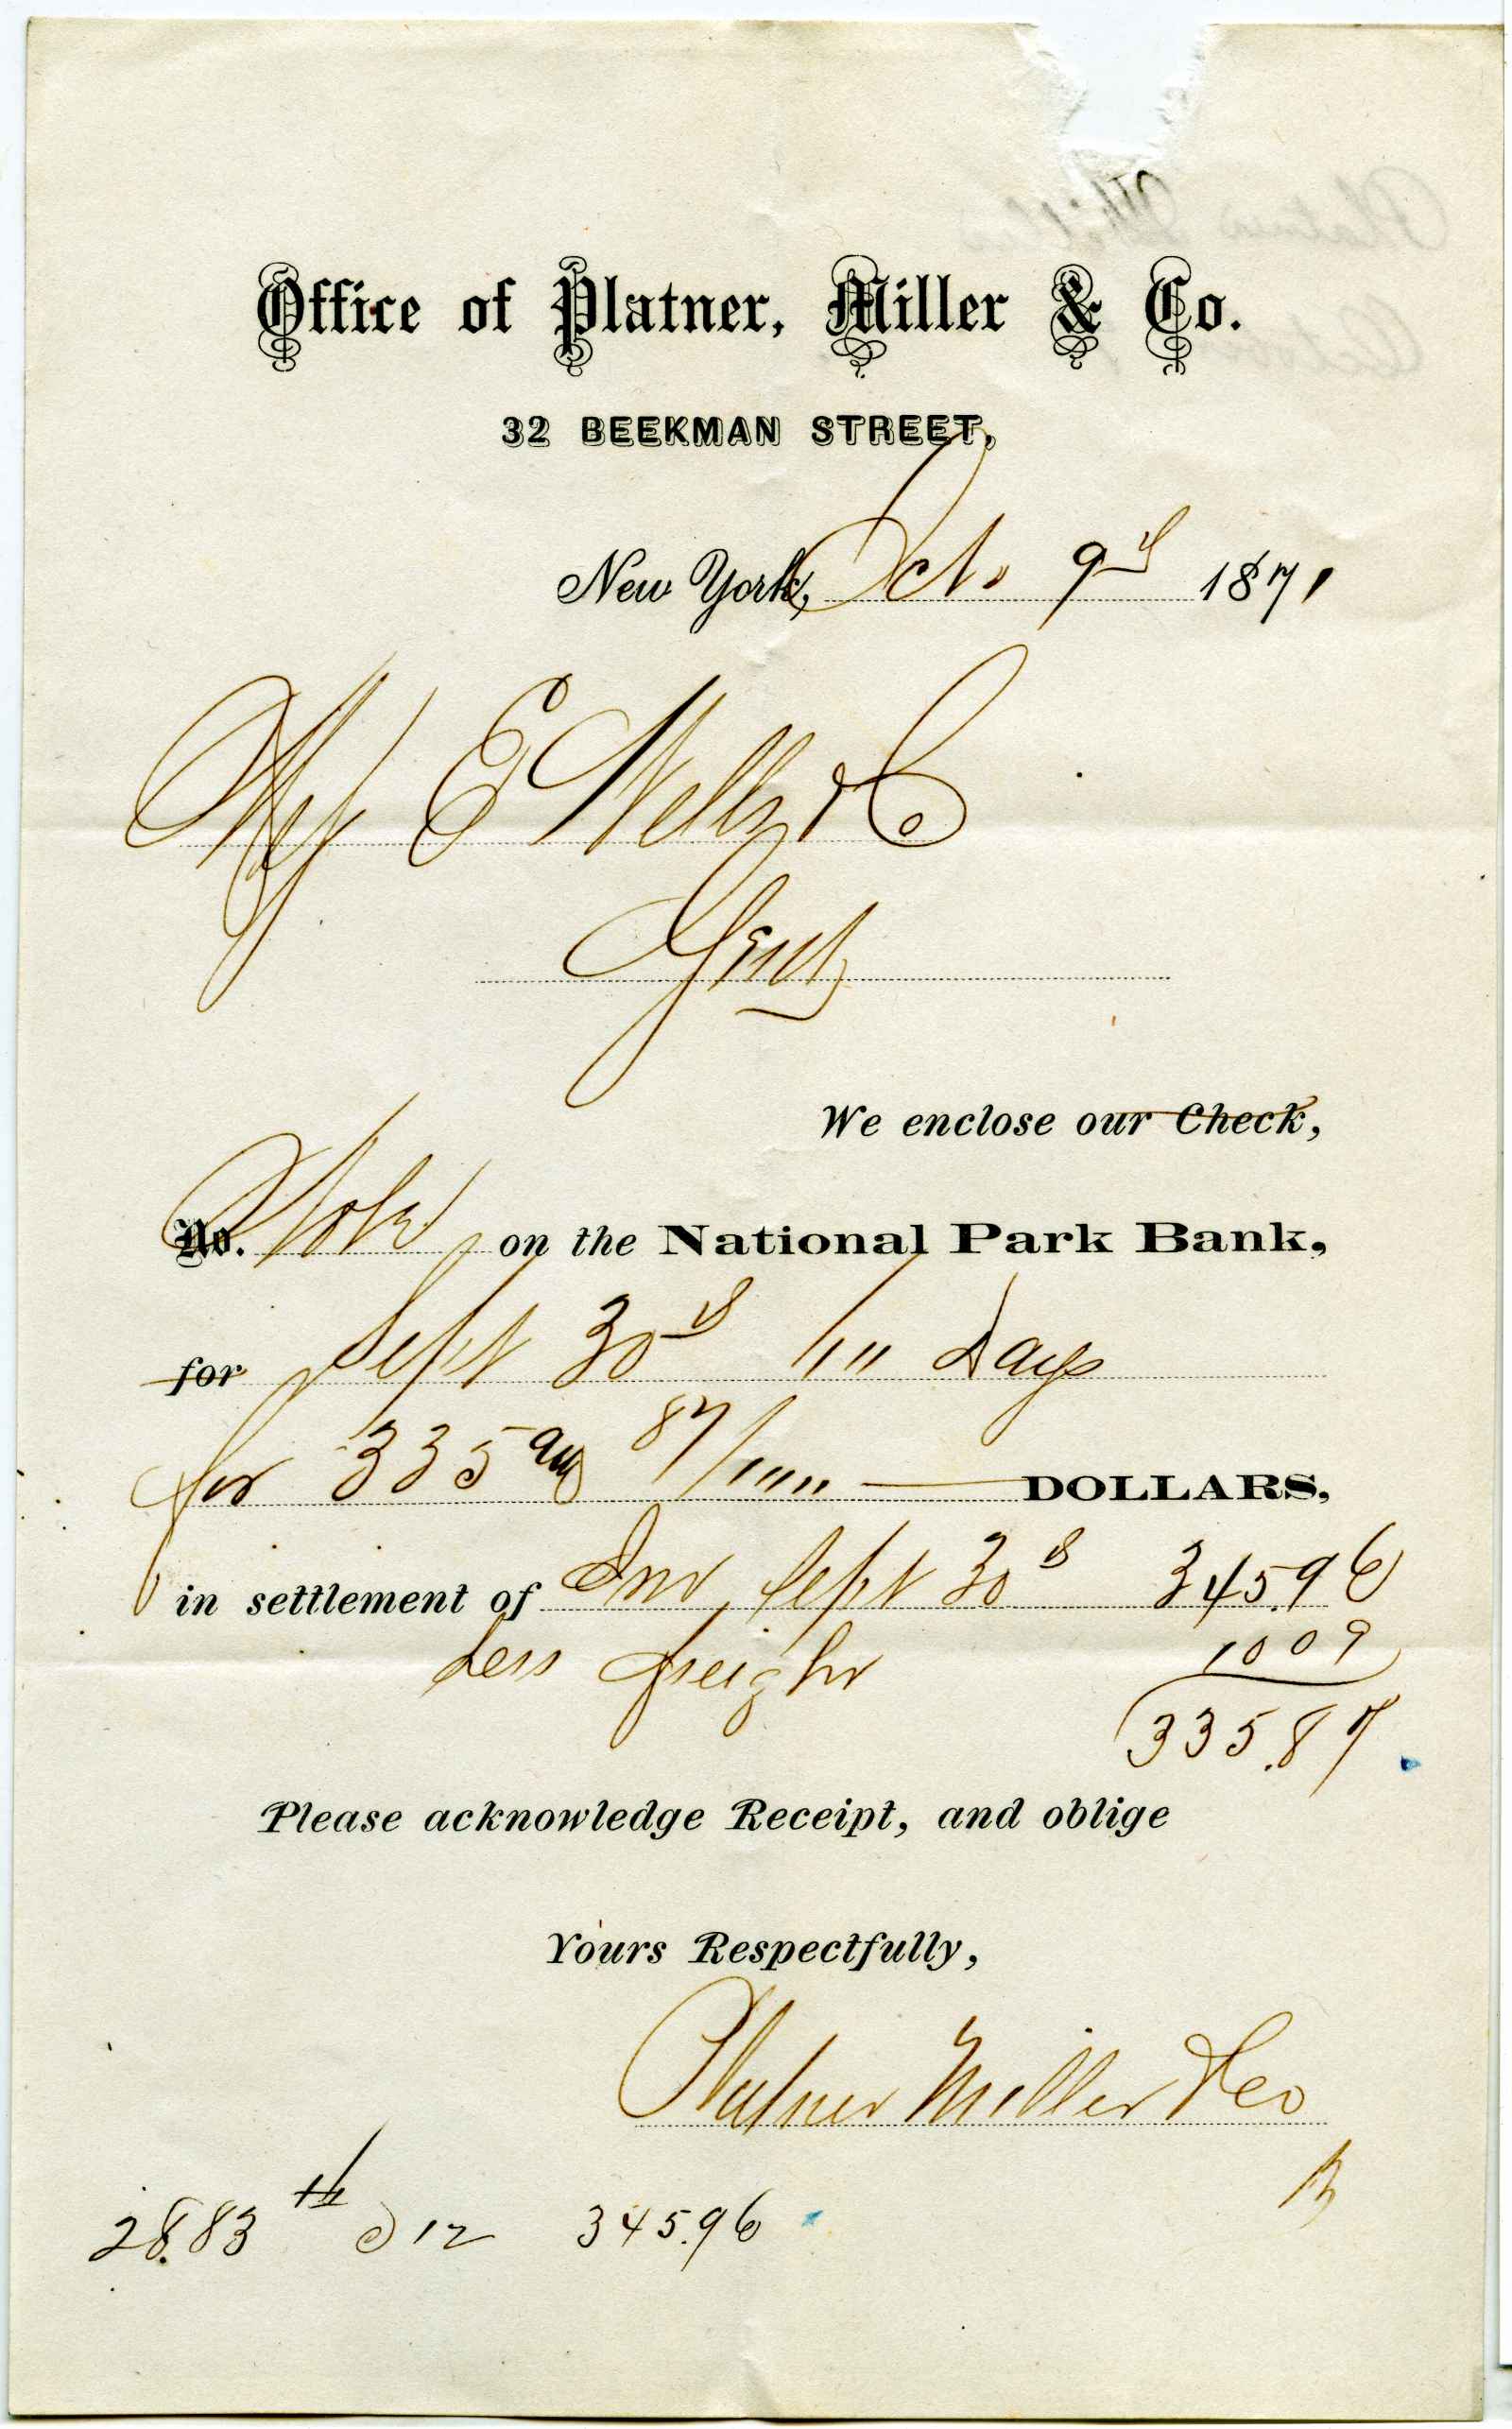 Office of Platner, Miller & Co.
32 BEEKMAN STREET,
New York, Oct. 9th 1871
E Wells & Co
Gents
We enclose our Check,
No. Note on the National Park Bank,
for Sept 30th Days
for 335 and 87/ DOLLARS,
in settlement of Inv Sept 30th 345.96
Less freight 10 09
335.87
Please acknowledge Receipt, and oblige
Yours Respectfully,
Platner Miller & Co
B
28.83 @ 12 345.96